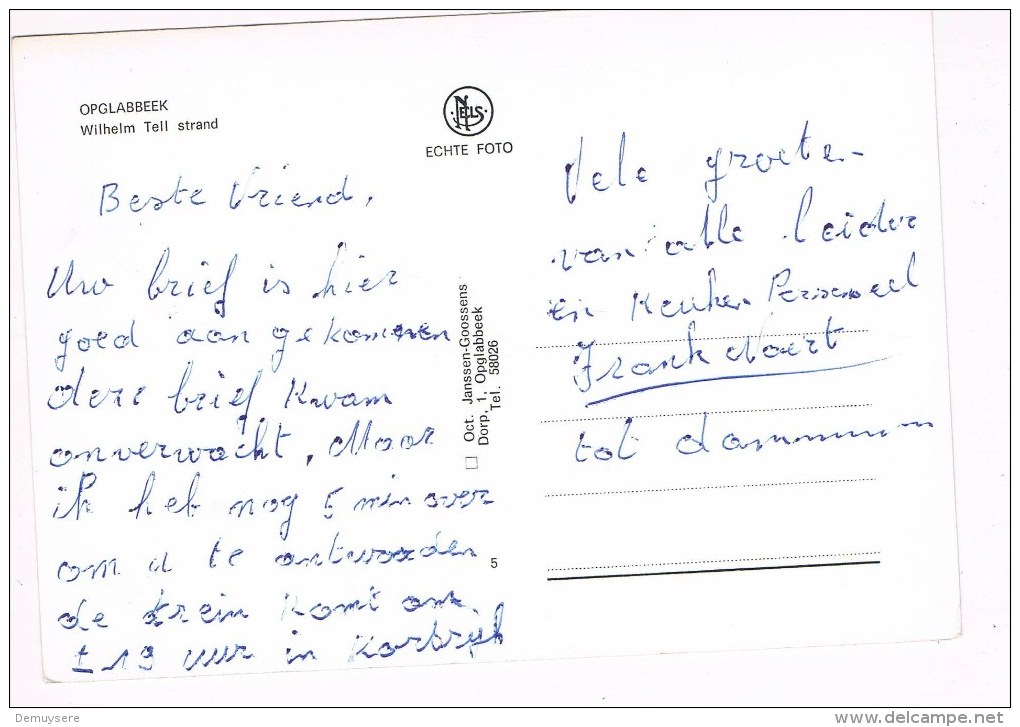 OPGLABBEEK
Wilhelm Tell strand
NELS
ECHTE FOTO
Beste Vriend,
Uw brief is hier
goed aan gekomen
deze brief kwam
onverwacht, Maar
ik heb nog 5 min over
om u te antwoorden
de trein komt om
± 19 uur in Kortrijk
Oct. Janssen-Goossens
Dorp, 1, Opglabbeek
Tel. 58026
5
Vele groeten
van alle leider
en Keuken Personeel
Frank
tot dammmmm
Demuysere
www.delcampe.net